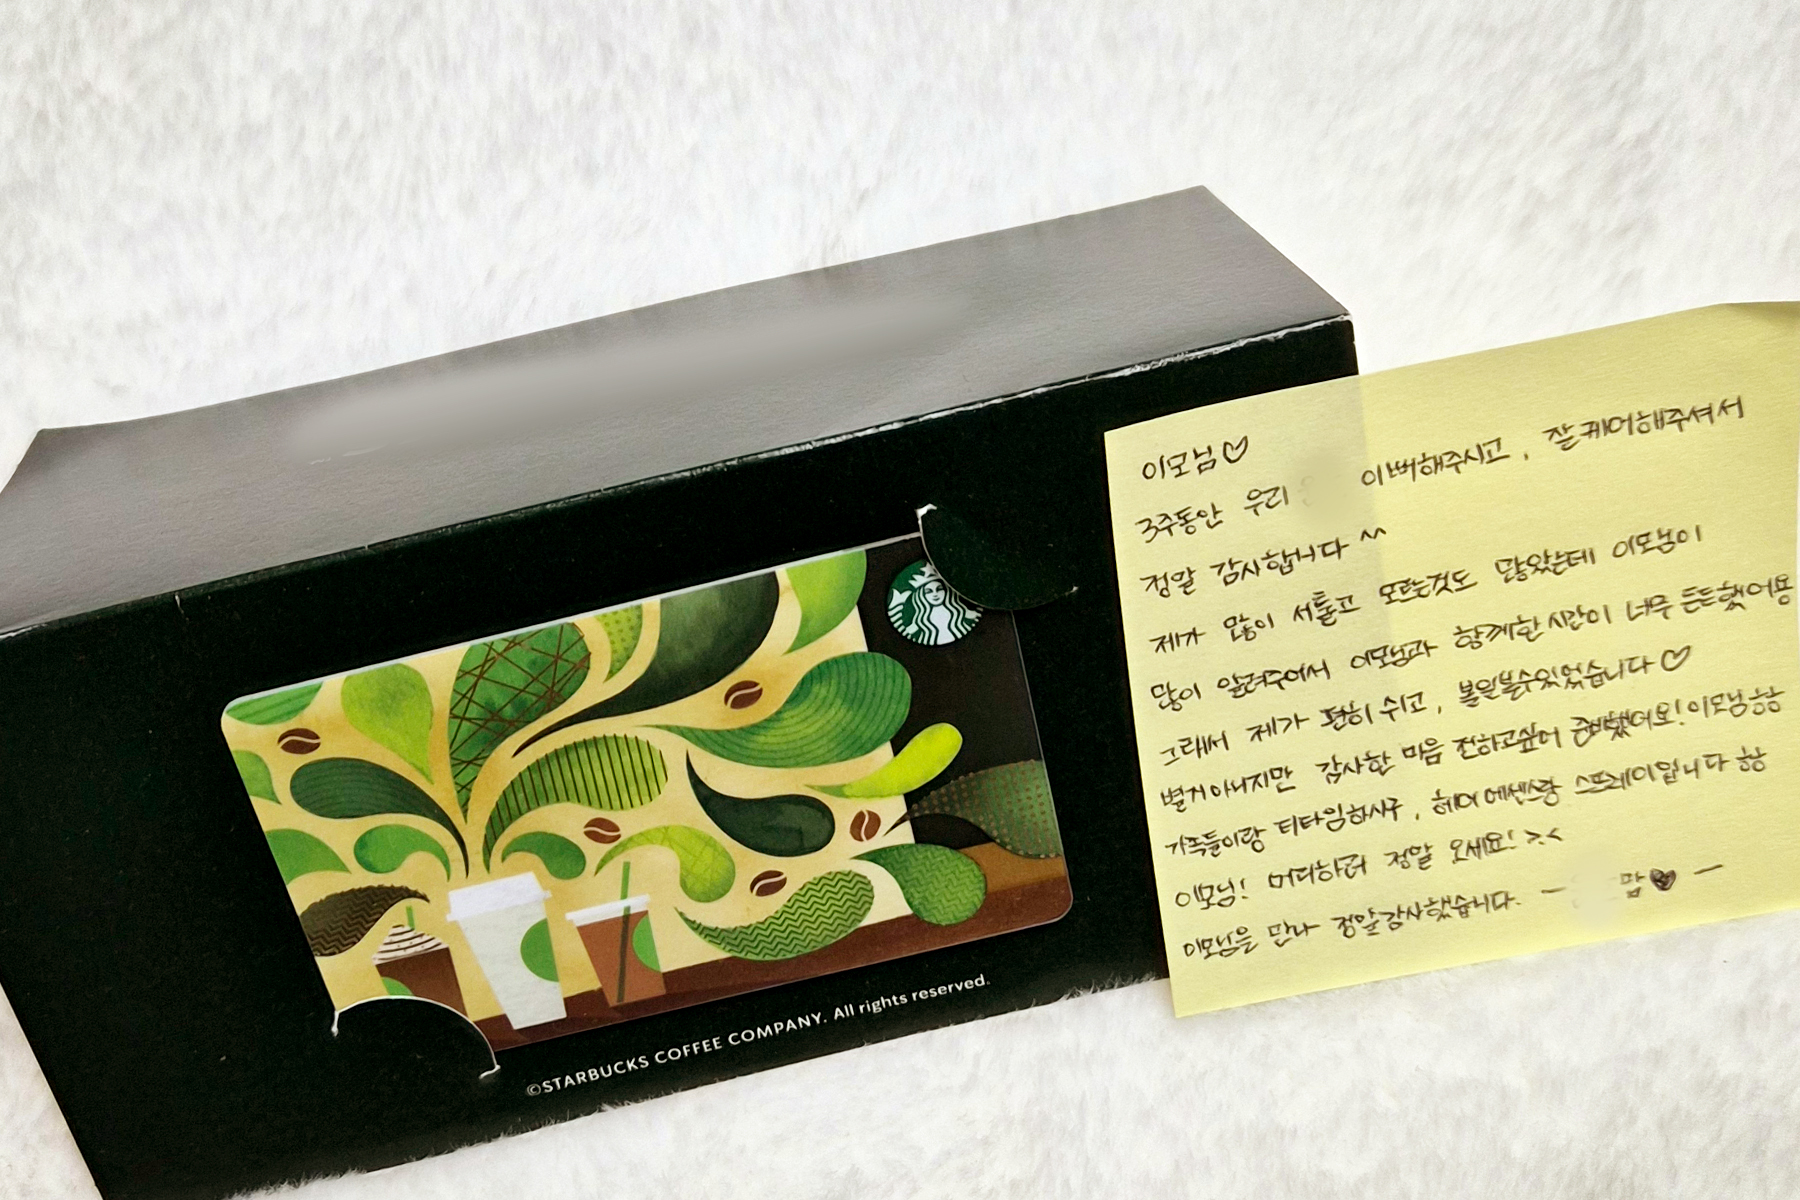 ©STARBUCKS COFFEE COMPANY. All rights reserved.
이모님♡
3주동안 우리 이뻐해주시고, 잘 케어해주셔서
정말 감사합니다 ^^
제가 많이 서툴고 모르는것도 많았는데 이모님이
많이 알려주어서 이모님과 함께한 시간이 너무 든든했어용
그래서 제가 편히 쉬고, 볼일볼수있었습니다♡
별거아니지만 감사한 마음 전하고싶어 준비했어요! 이모님 핳
가족들이랑 티타임하시구, 헤어에센스랑 스프레이입니다 핳
이모님! 머디하러 정말 오세요! >.<
이모님을 만나 정말감사했습니다. - 맘♥ -